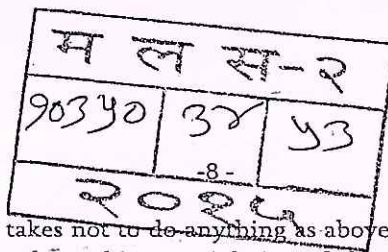 म ल स-२
१०३५० ३४ ५३
-8-
२०२५
takes not to do anything as above